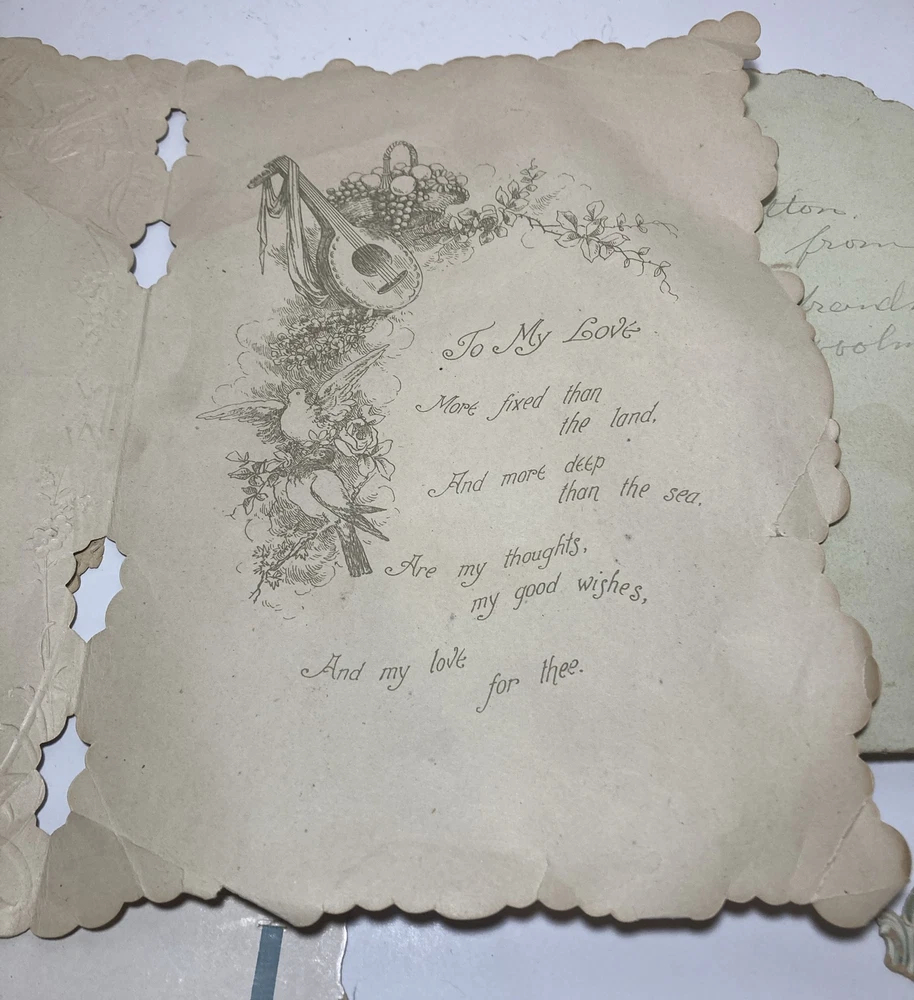 To My Love
More fixed than
the land,
And more deep
than the sea,
Are my thoughts,
my good wishes,
And my love
for thee.
from